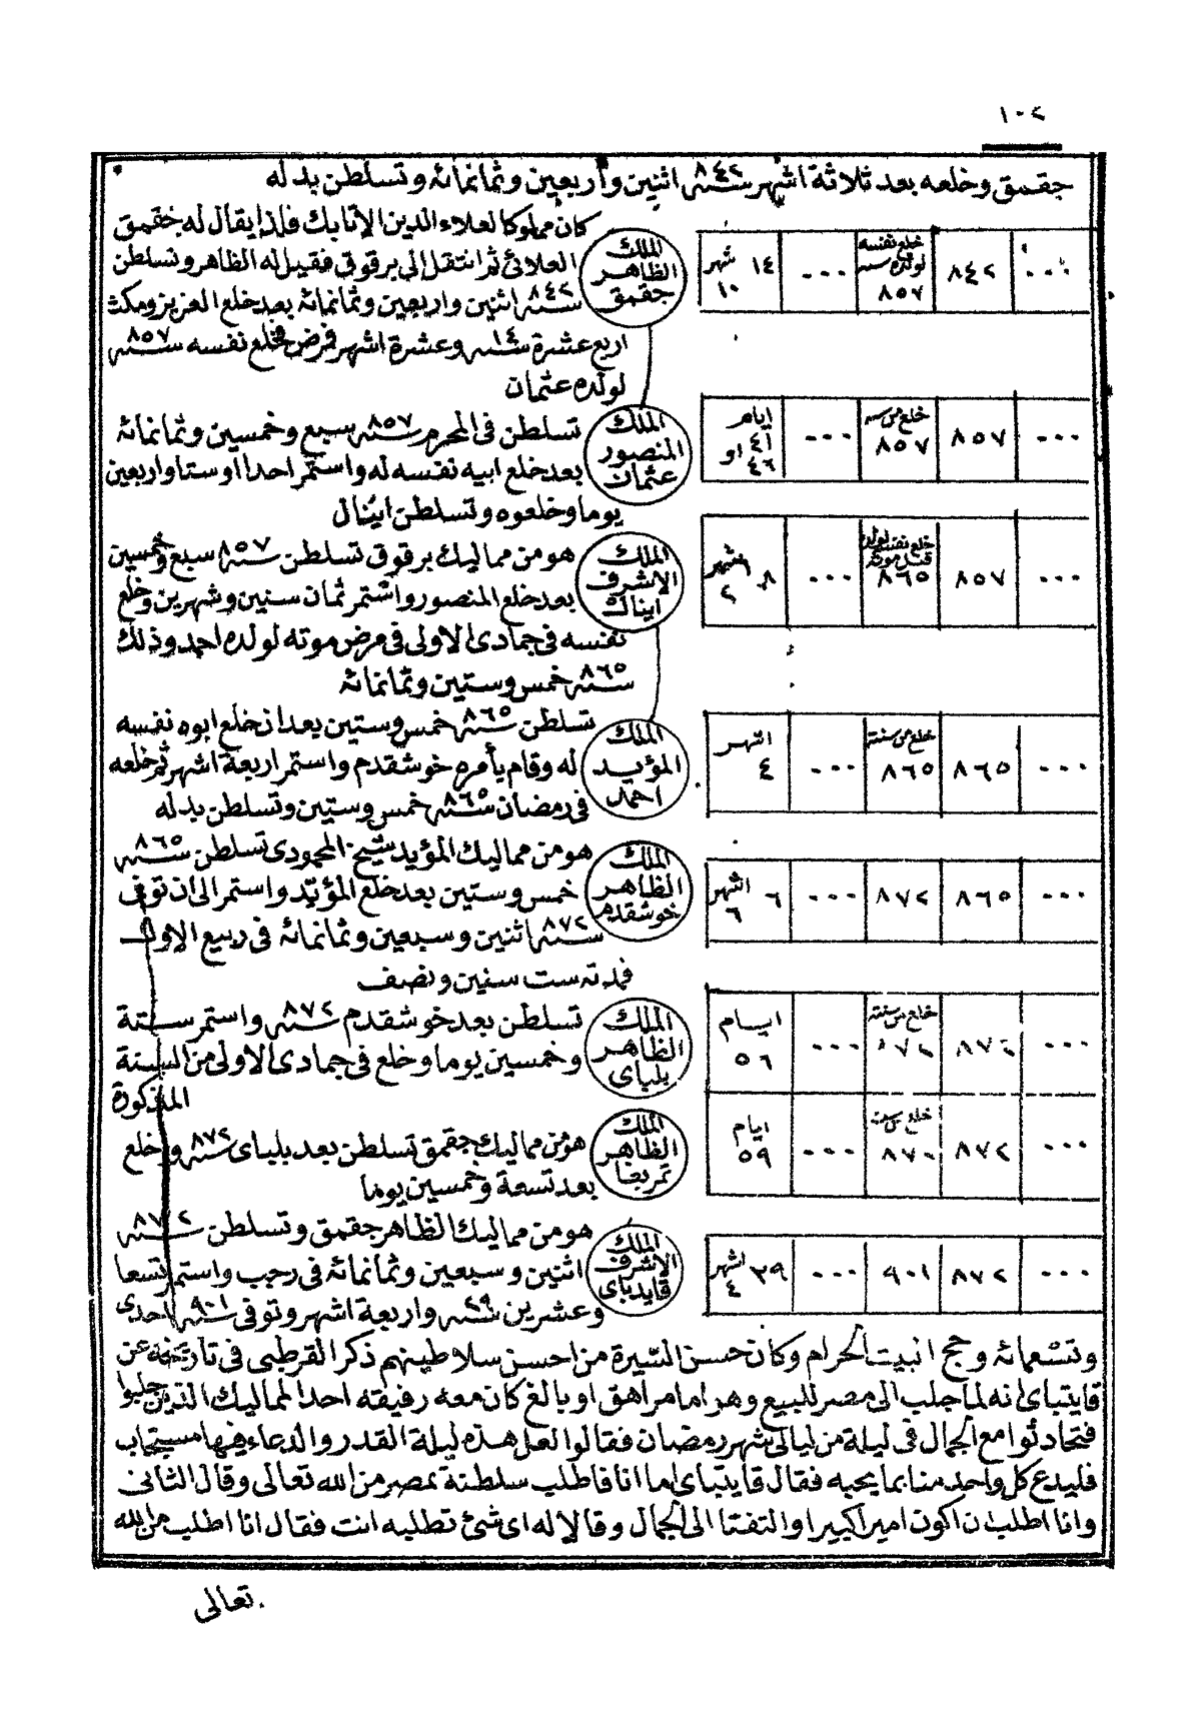 ١٠٢
جقمق وخلعه بعد ثلاثة اشهر سنة ٨٤٢ اثنين واربعين وثمانمائة وتسلطن بدله
كان مملوكا لعلاء الدين الاتابك فلذا يقال له جقمق
الملك الظاهر جقمق
... ٨٤٢ خلع نفسه لولده سنة ٨٥٧ ... ١٤ شهر ١٠
العلائى ثم انتقل الى برقوق فقيل له الظاهر وتسلطن
سنة ٨٤٢ اثنين واربعين وثمانمائة بعد خلع العزيز ومكث
اربع عشرة سنة ١٤ وعشرة اشهر فمرض فخلع نفسه سنة ٨٥٧
لولده عثمان
الملك المنصور عثمان
... ٨٥٧ خلع من سنة ٨٥٧ ... ايام ٤١ او ٤٦
تسلطن فى المحرم سنة ٨٥٧ سبع وخمسين وثمانمائة
بعد خلع ابيه نفسه له واستمر احدا او ستا واربعين
يوما وخلعوه وتسلطن اينال
الملك الاشرف اينال
... ٨٥٧ خلع نفسه لولده قبل موته ٨٦٥ ... ٨ اشهر ٢
هو من مماليك برقوق تسلطن سنة ٨٥٧ سبع وخمسين
بعد خلع المنصور واستمر ثمان سنين وشهرين وخلع
نفسه فى جمادى الاولى فى مرض موته لولده احمد وذلك
سنة ٨٦٥ خمس وستين وثمانمائة
الملك المؤيد احمد
... ٨٦٥ خلع من سنة ٨٦٥ ... اشهر ٤
تسلطن سنة ٨٦٥ خمس وستين بعد ان خلع ابوه نفسه
له وقام بأمره خوشقدم واستمر اربعة اشهر ثم خلعه
فى رمضان سنة ٨٦٥ خمس وستين وتسلطن بدله
الملك الظاهر خوشقدم
... ٨٦٥ ٨٧٢ ... ٦ اشهر ٦
هو من مماليك المؤيد شيخ المحمودى تسلطن سنة ٨٦٥
خمس وستين بعد خلع المؤيد واستمر الى ان توفى
سنة ٨٧٢ اثنين وسبعين وثمانمائة فى ربيع الاول
فمدته ست سنين ونصف
الملك الظاهر بلباى
... ٨٧٢ خلع من سنة ٨٧٢ ... ايام ٥٦
تسلطن بعد خوشقدم سنة ٨٧٢ واستمر ستة
وخمسين يوما وخلع فى جمادى الاولى من السنة
المذكورة
الملك الظاهر تمربغا
... ٨٧٢ خلع من سنة ... ايام ٥٩
هو من مماليك جقمق تسلطن بعد بلباى سنة ٨٧٢ وخلع
بعد تسعة وخمسين يوما
الملك الاشرف قايدباى
... ٨٧٢ ٩٠١ ... ٢٩ اشهر ٤
هو من مماليك الظاهر جقمق وتسلطن سنة ٨٧٢
اثنين وسبعين وثمانمائة فى رجب واستمر تسعا
وعشرين سنة ٢٩ واربعة اشهر وتوفى سنة ٩٠١ احدى
وتسعمائة وحج البيت الحرام وكان حسن السيرة من احسن سلاطينهم ذكر القرطبى فى تاريخه عن
قايتباى انه لما جلب الى مصر للبيع وهو اما مراهق او بالغ كان معه رفيقه احد المماليك الذين جلبوا
فتحادثوا مع الجمال فى ليلة من ليالى شهر رمضان فقالوا لعل هذه ليلة القدر والدعاء فيها مستجاب
فليدع كل واحد منا بما يحبه فقال قايتباى اما انا فاطلب سلطنة مصر من الله تعالى وقال الثانى
وانا اطلب ان اكون اميرا كبيرا والتفتا الى الجمال وقالا له اى شئ تطلبه انت فقال انا اطلب من الله
تعالى